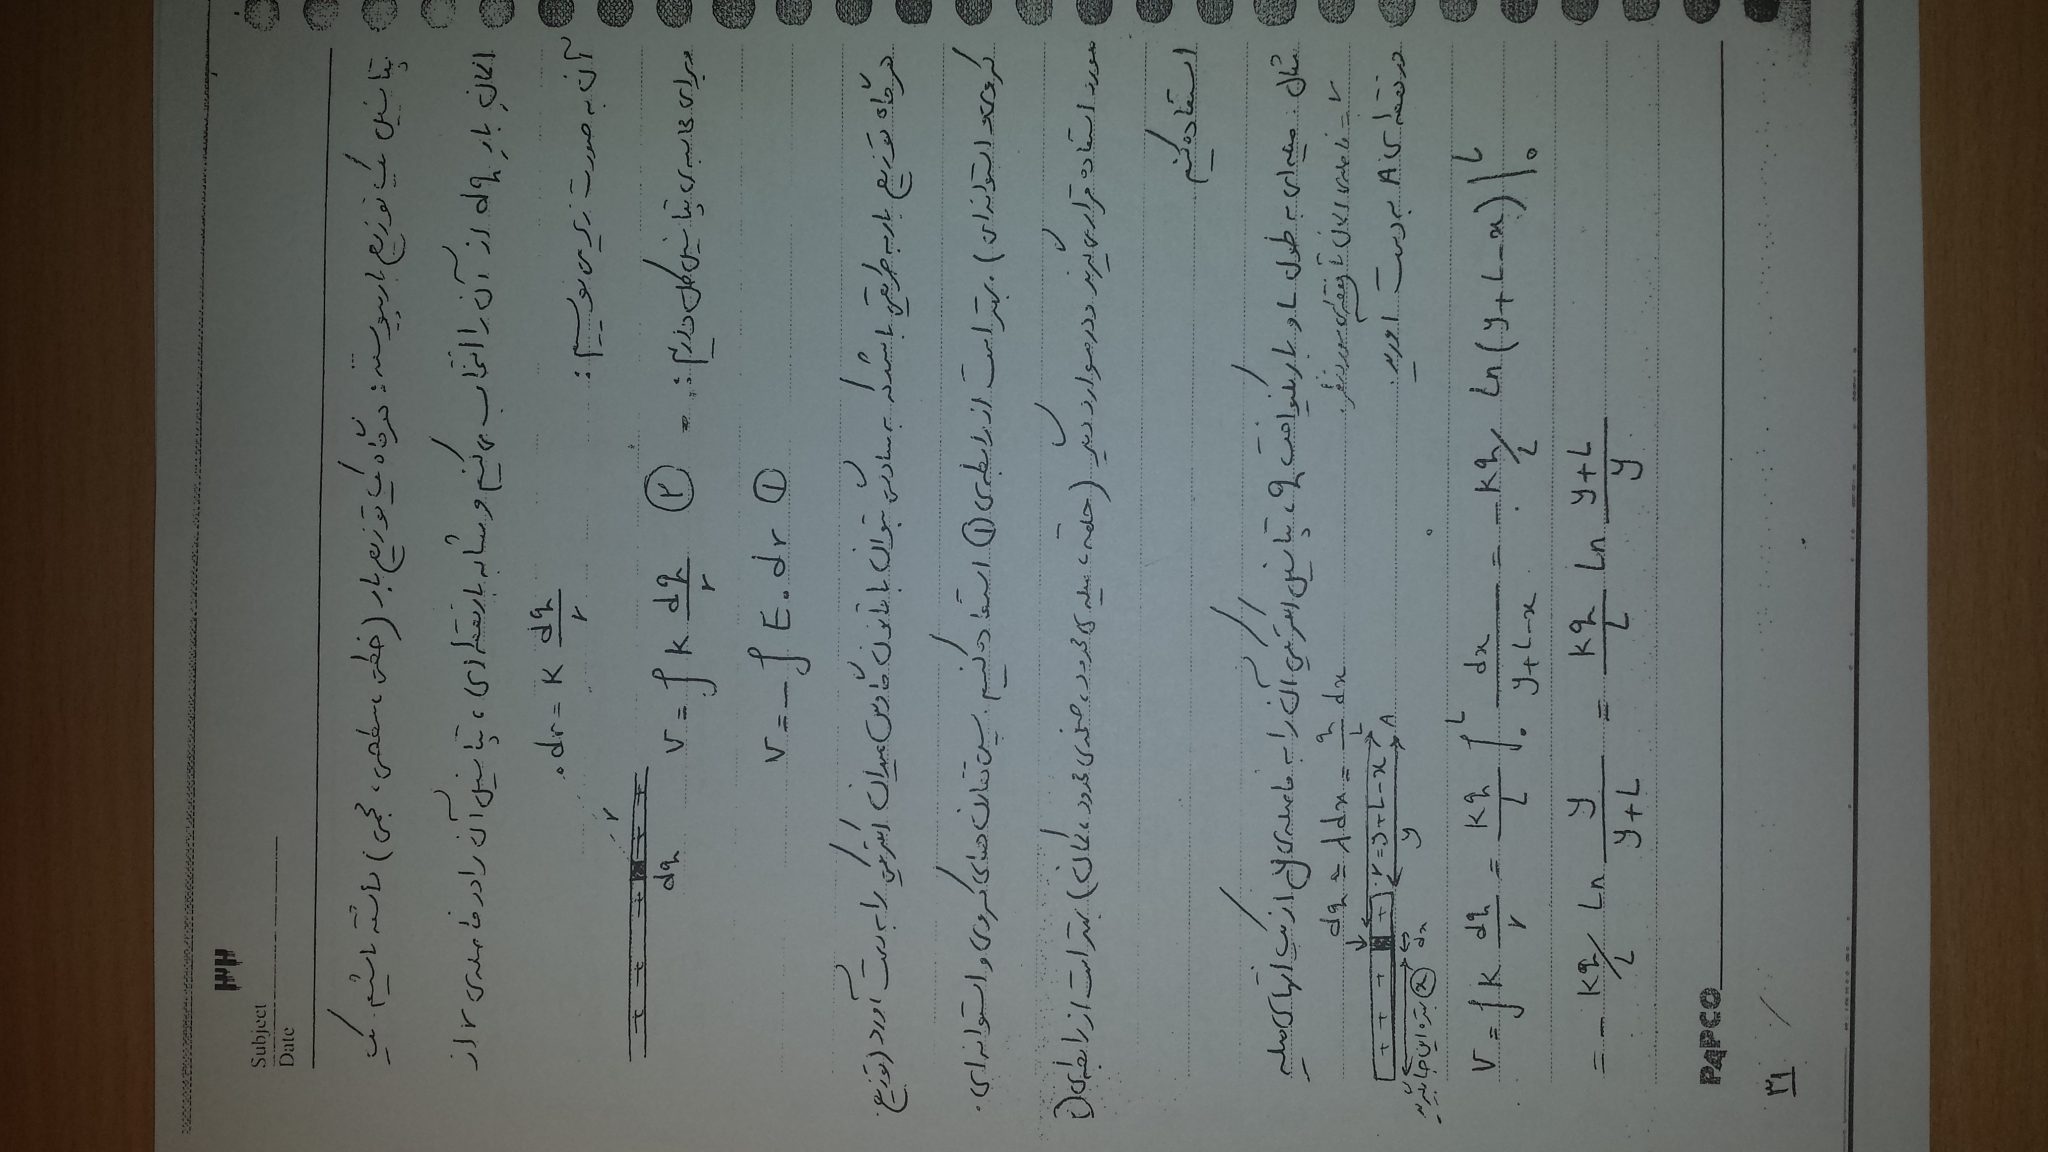 Subject
Date
پتانسیل یک توزیع بار پیوسته: هرگاه یک توزیع بار (خطی، سطحی، حجمی) داشته باشیم یک
المان بار dq از آن را انتخاب می کنیم و مشابه بار نقطه ای، پتانسیل آن را در فاصله ی r از
آن به صورت زیر می نویسیم:
dv = K dq/r
r
+ + + + + + +
dq
برای محاسبه ی پتانسیل کل داریم:
V = ∫ K dq/r ②
V = -∫ E . dr ①
هرگاه توزیع بار به طریقی باشد که به سادگی بتوان با قانون گاوس میدان الکتریکی را به دست آورد (توزیع
کروی و استوانه ای). بهتر است از رابطه ی ① استفاده کنیم. پس تقارن های کروی و استوانه ای
مورد استفاده قرار می گیرند و در موارد دیگر (حلقه، میله ی محدود، صفحه ی محدود، کمان) بهتر است از رابطه ی ②
استفاده کنیم
مثال: میله ای به طول L و بار یکنواخت q، پتانسیل الکتریکی آن را به فاصله ی y از یک انتهای میله
r = فاصله ی المان تا نقطه ی مورد نظر.
dq = λdx = q/L dx
در نقطه ی A به دست آورید.
+ + + + +
r = y+L-x
A
y
x
dx
V = ∫ K dq/r = Kq/L ∫₀ᴸ dx/(y+L-x) = - Kq/L Ln(y+L-x) |₀ᴸ
= - Kq/L Ln y/(y+L) = Kq/L Ln (y+L)/y
PAPCO
۳۱